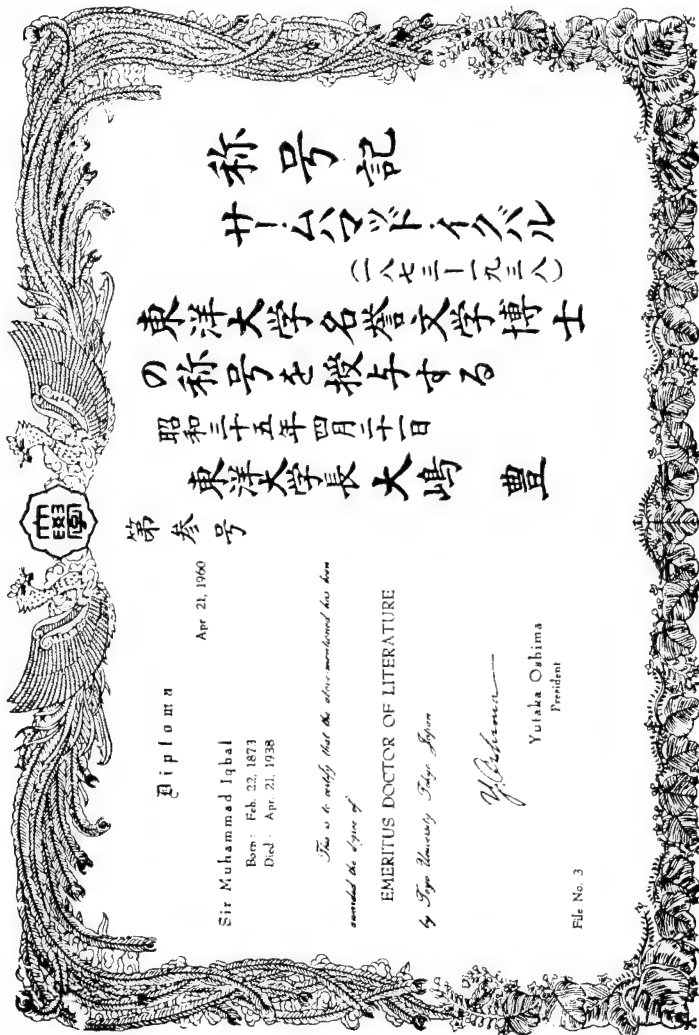 称号記
サー・ムハマッド・イクバル
(一八七三―一九三八)
東洋大学名誉文学博士
の称号を授与する
昭和三十五年四月二十一日
東洋大学長 大嶋 豊
第参号
Diploma
Apr 21, 1960
Sir Muhammad Iqbal
Born: Feb. 22, 1873
Died: Apr. 21, 1938
This is to certify that the above-mentioned has been
awarded the degree of
EMERITUS DOCTOR OF LITERATURE
by Toyo University Tokyo Japan
Y. Oshima
Yutaka Oshima
President
File No. 3